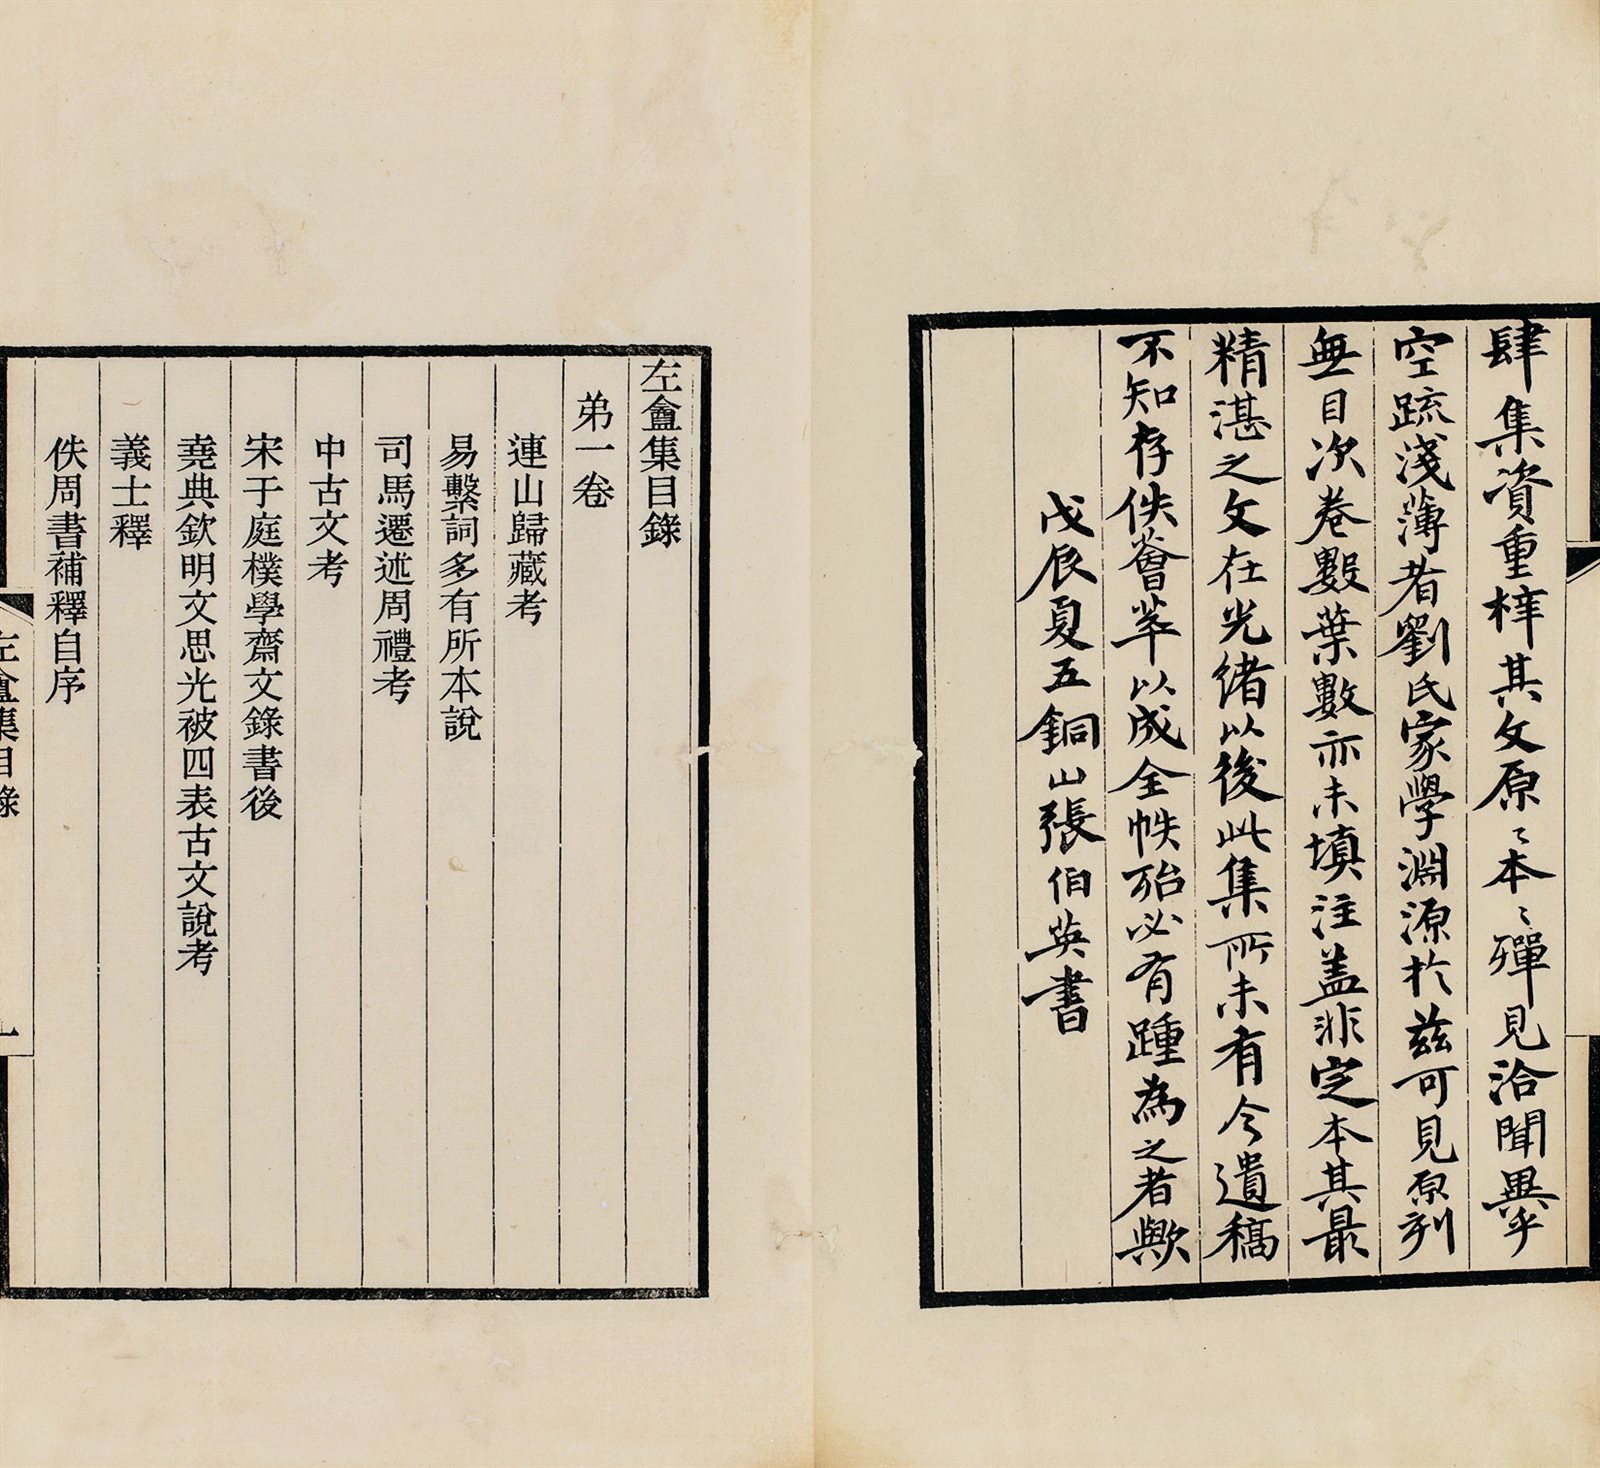 肆集資重梓其文原〻本〻殫見洽聞異乎
空疏淺薄者劉氏家學淵源於茲可見原刻
無目次卷數葉數亦未填注蓋非定本其最
精湛之文在光緒以後此集所未有今遺稿
不知存佚薈萃以成全帙殆必有踵為之者歟
戊辰夏五銅山張伯英書
左盦集目錄
弟一卷
連山歸藏考
易繫詞多有所本說
司馬遷述周禮考
中古文考
宋于庭樸學齋文錄書後
堯典欽明文思光被四表古文說考
義士釋
佚周書補釋自序
左盦集目錄
一